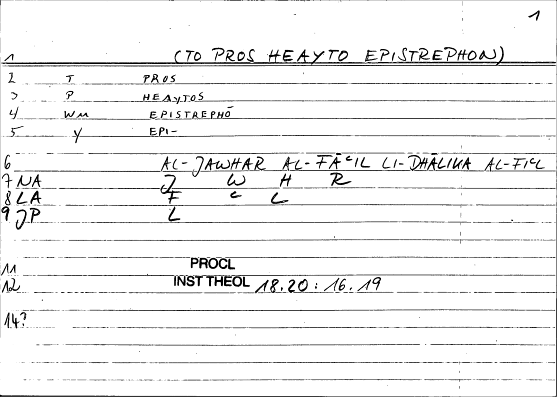 1
1 (TO PROS HEAYTO EPISTREPHON)
2 T PROS
3 P HEAYTOS
4 WM EPISTREPHŌ
5 Y EPI-
6 AL-JAWHAR AL-FĀʿIL LI-DHĀLIKA AL-FIʿL
7 NA J W H R
8 LA F ʿ L
9 JP L
11 PROCL
12 INST THEOL 18.20 : 16.19
14?